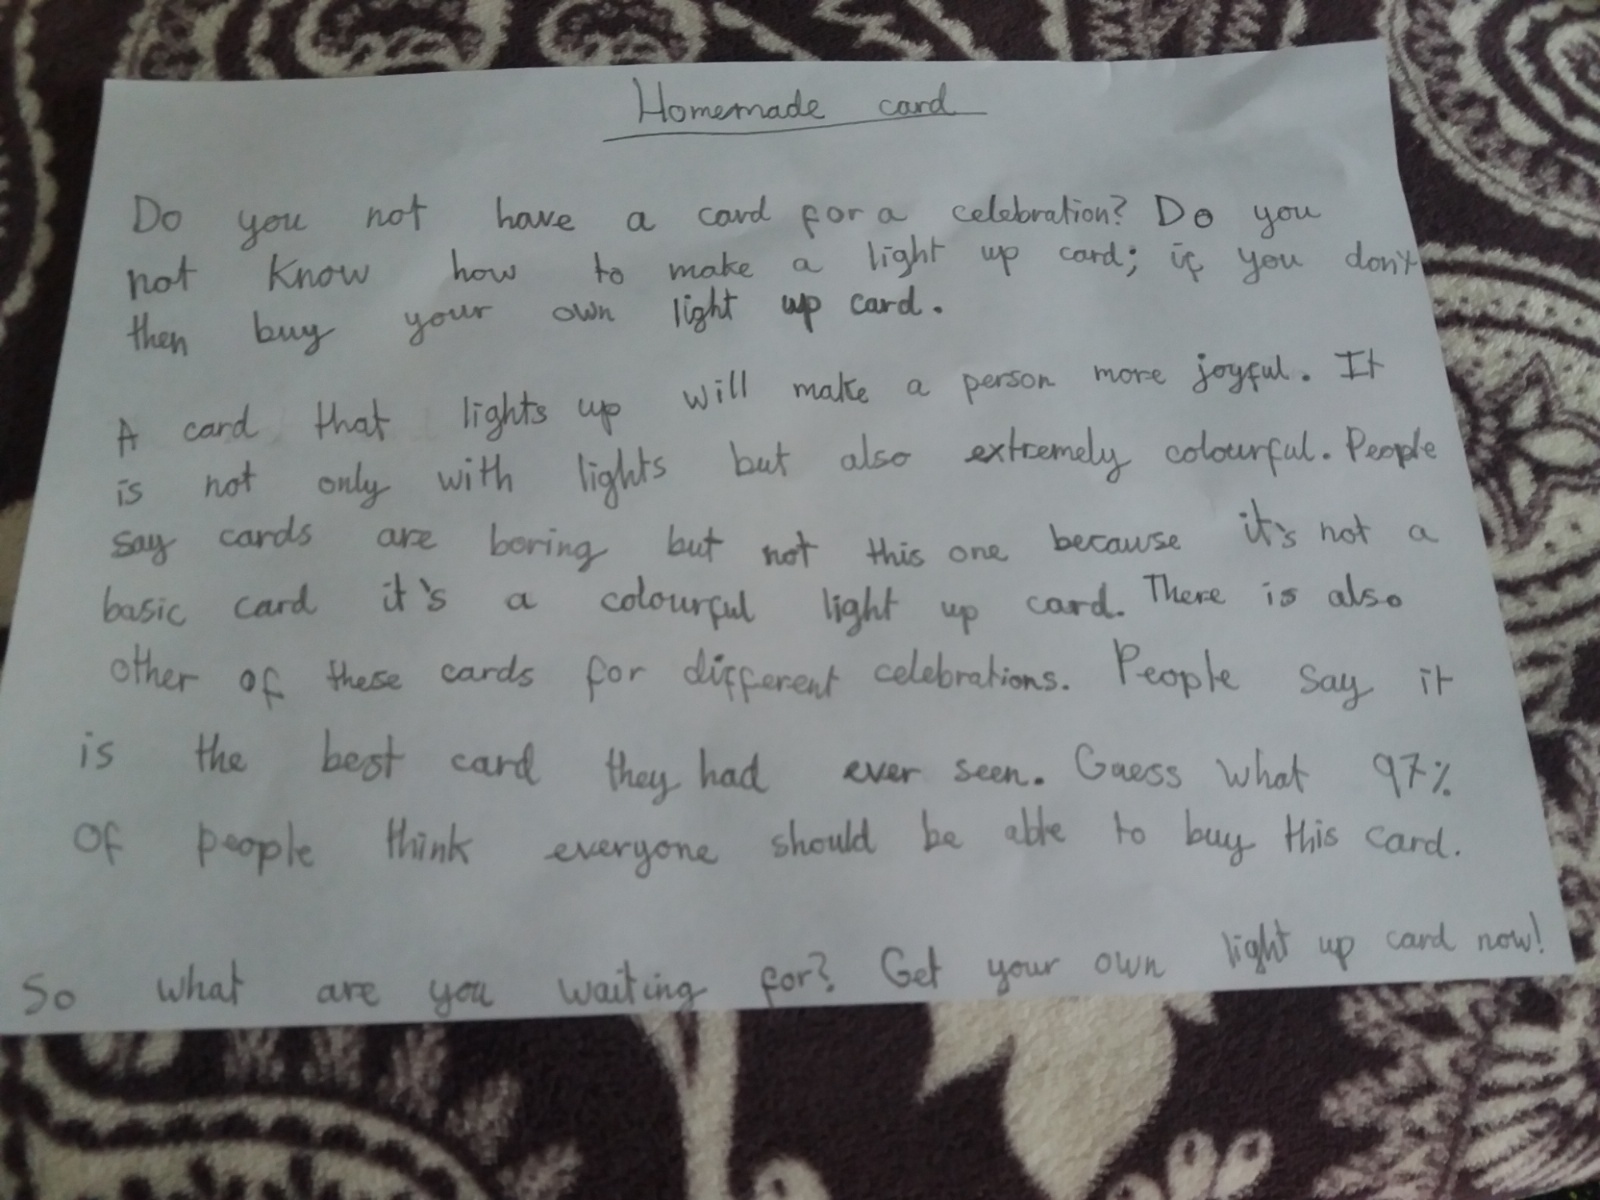 Homemade card
Do you not have a card for a celebration? Do you
not know how to make a light up card; if you don't
then buy your own light up card.
A card that lights up will make a person more joyful. It
is not only with lights but also extremely colourful. People
say cards are boring but not this one because it's not a
basic card it's a colourful light up card. There is also
other of these cards for different celebrations. People say it
is the best card they had ever seen. Guess what 97%
of people think everyone should be able to buy this card.
So what are you waiting for? Get your own light up card now!